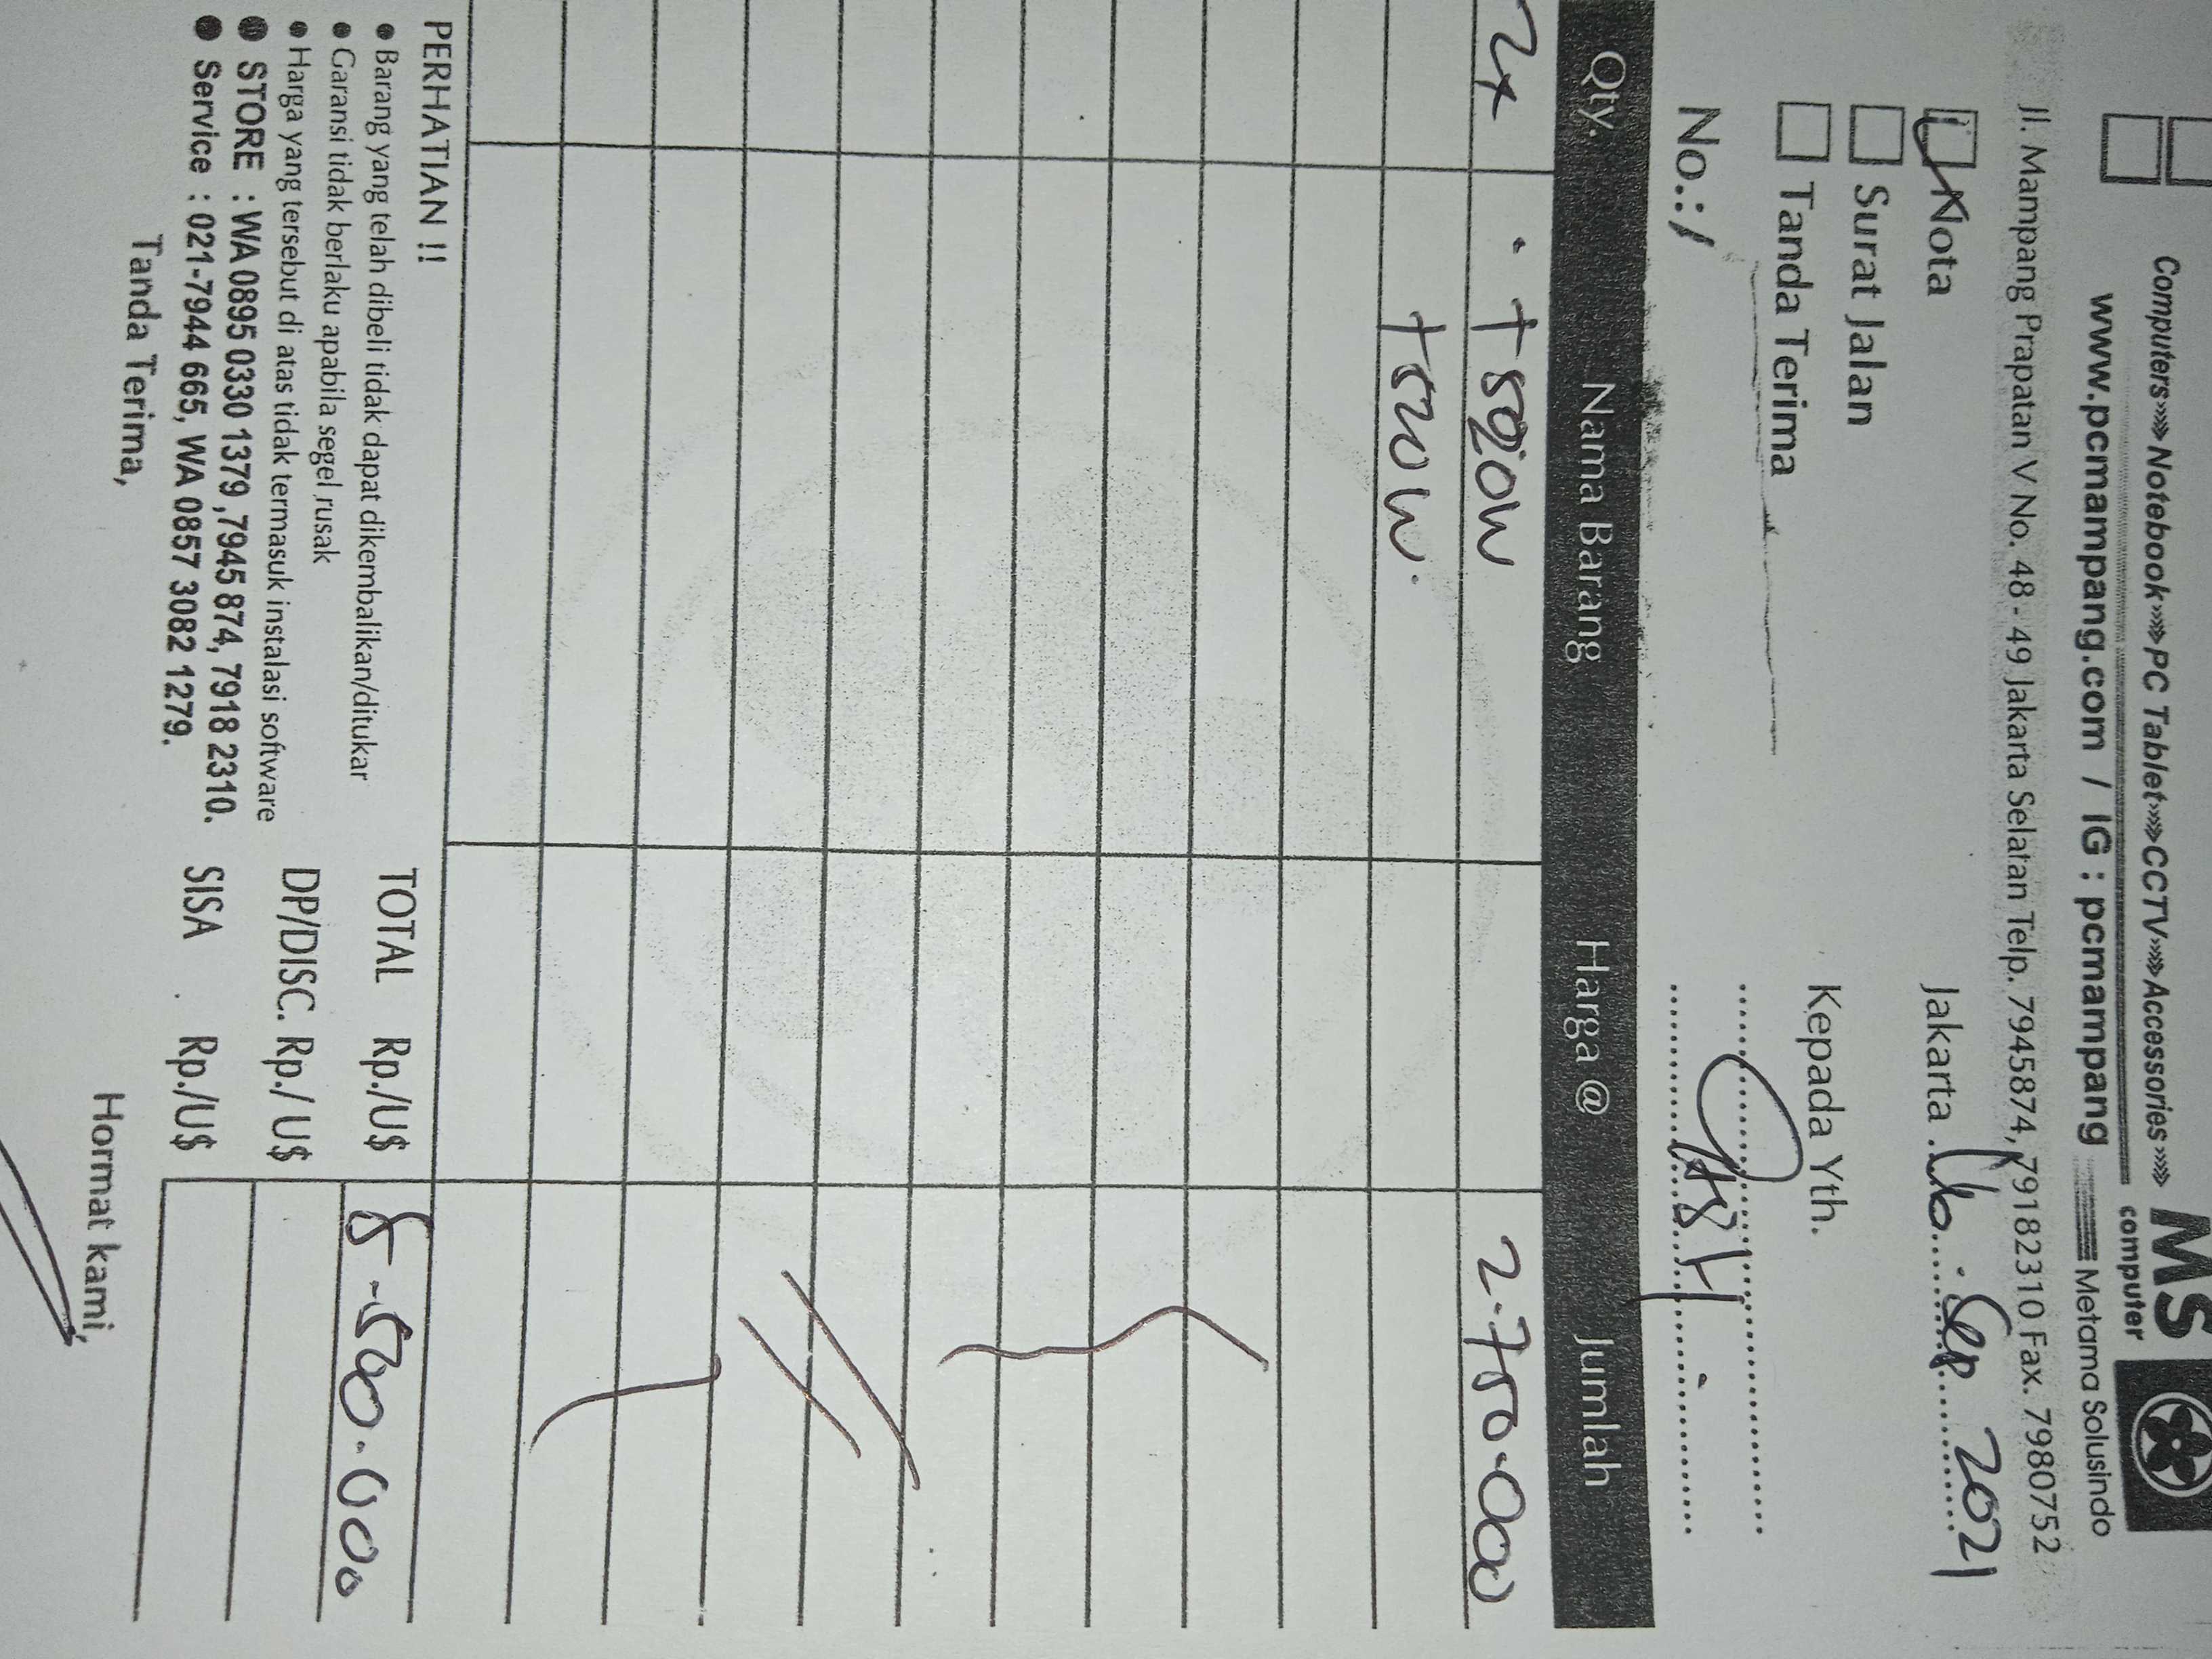 Computers»»» Notebook»»» PC Tablet»»» CCTV»»» Accessories »»»
MS
computer
www.pcmampang.com / IG : pcmampang
Metama Solusindo
Jl. Mampang Prapatan V No. 48 - 49 Jakarta Selatan Telp. 7945874, 79182310 Fax. 7980752
Nota
Jakarta
Sep 2021
Surat Jalan
Tanda Terima
Kepada Yth.
No.:
Qty. Nama Barang Harga @ Jumlah
2x
2.750.000
T520W.
PERHATIAN !!
● Barang yang telah dibeli tidak dapat dikembalikan/ditukar
● Garansi tidak berlaku apabila segel rusak
● Harga yang tersebut di atas tidak termasuk instalasi software
● STORE : WA 0895 0330 1379 ,7945 874, 7918 2310.
● Service : 021-7944 665, WA 0857 3082 1279.
TOTAL Rp./U$ 5.500.000
DP/DISC. Rp./ U$
SISA Rp./U$
Tanda Terima,
Hormat kami,